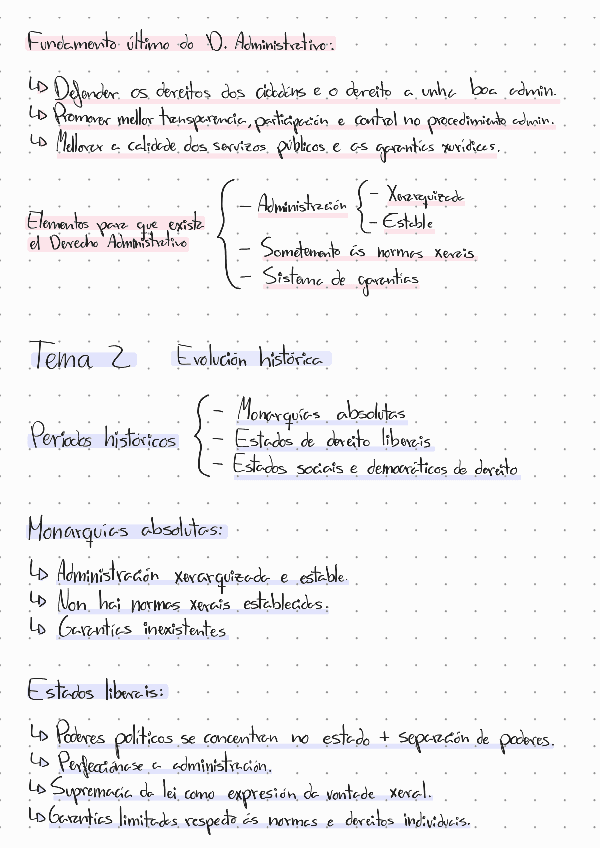 Fundamento último do D. Administrativo:
↳ Defender os dereitos dos cidadáns e o dereito a unha boa admin.
↳ Promover mellor transparencia, participación e control no procedimiento admin.
↳ Mellorar a calidade dos servizos públicos e as garantías xurídicas.
Elementos para que exista
el Derecho Administrativo
- Administración
- Xerarquizada
- Estable
- Sometemento ás normas xerais
- Sistema de garantías
Tema 2 Evolución histórica
Periodos históricos
- Monarquías absolutas
- Estados de dereito liberais
- Estados sociais e democráticos de dereito
Monarquías absolutas:
↳ Administración xerarquizada e estable.
↳ Non hai normas xerais establecidas.
↳ Garantías inexistentes
Estados liberais:
↳ Poderes políticos se concentran no estado + separación de poderes.
↳ Perfecciónase a administración.
↳ Supremacía da lei como expresión da vontade xeral.
↳ Garantías limitadas respecto ás normas e dereitos individuais.